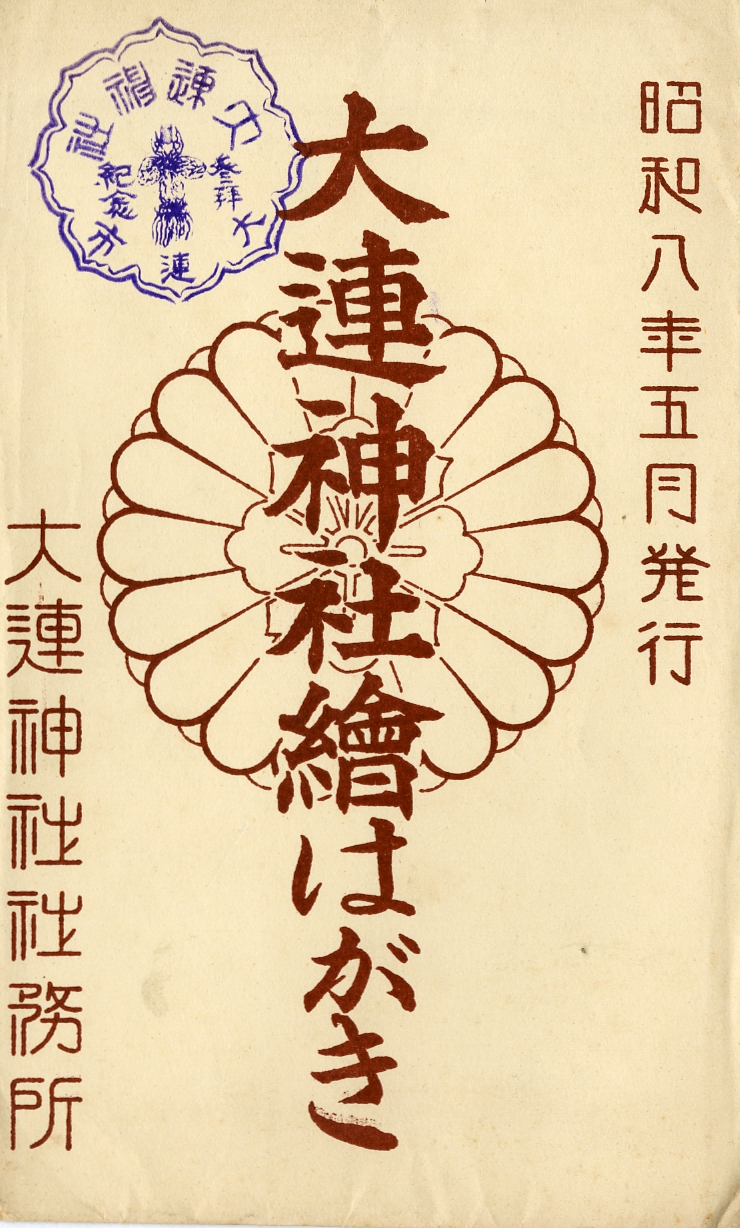 昭和八年五月発行
大連神社繪はがき
大連神社社務所
大連神社
參拜
紀念
大連